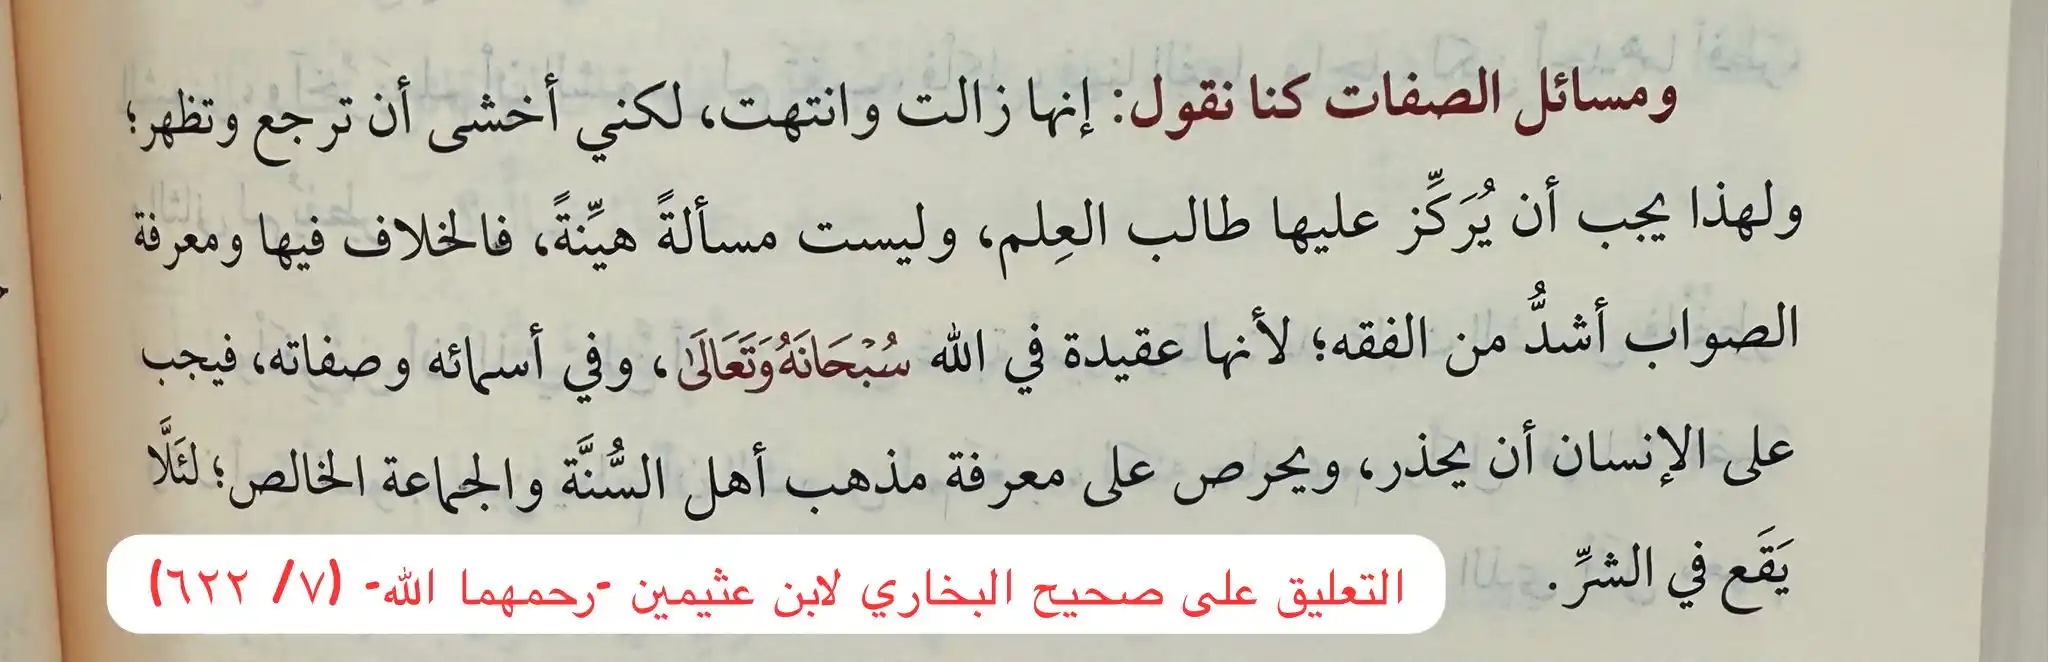 ومسائل الصفات كنا نقول: إنها زالت وانتهت، لكني أخشى أن ترجع وتظهر؛
ولهذا يجب أن يُرَكِّز عليها طالب العِلم، وليست مسألةً هيِّنةً، فالخلاف فيها ومعرفة
الصواب أشدُّ من الفقه؛ لأنها عقيدة في الله سُبْحَانَهُ وَتَعَالَىٰ، وفي أسمائه وصفاته، فيجب
على الإنسان أن يحذر، ويحرص على معرفة مذهب أهل السُّنَّة والجماعة الخالص؛ لئَلَّا
يَقَع في الشرِّ.
التعليق على صحيح البخاري لابن عثيمين -رحمهما الله- (٧/ ٦٢٢)